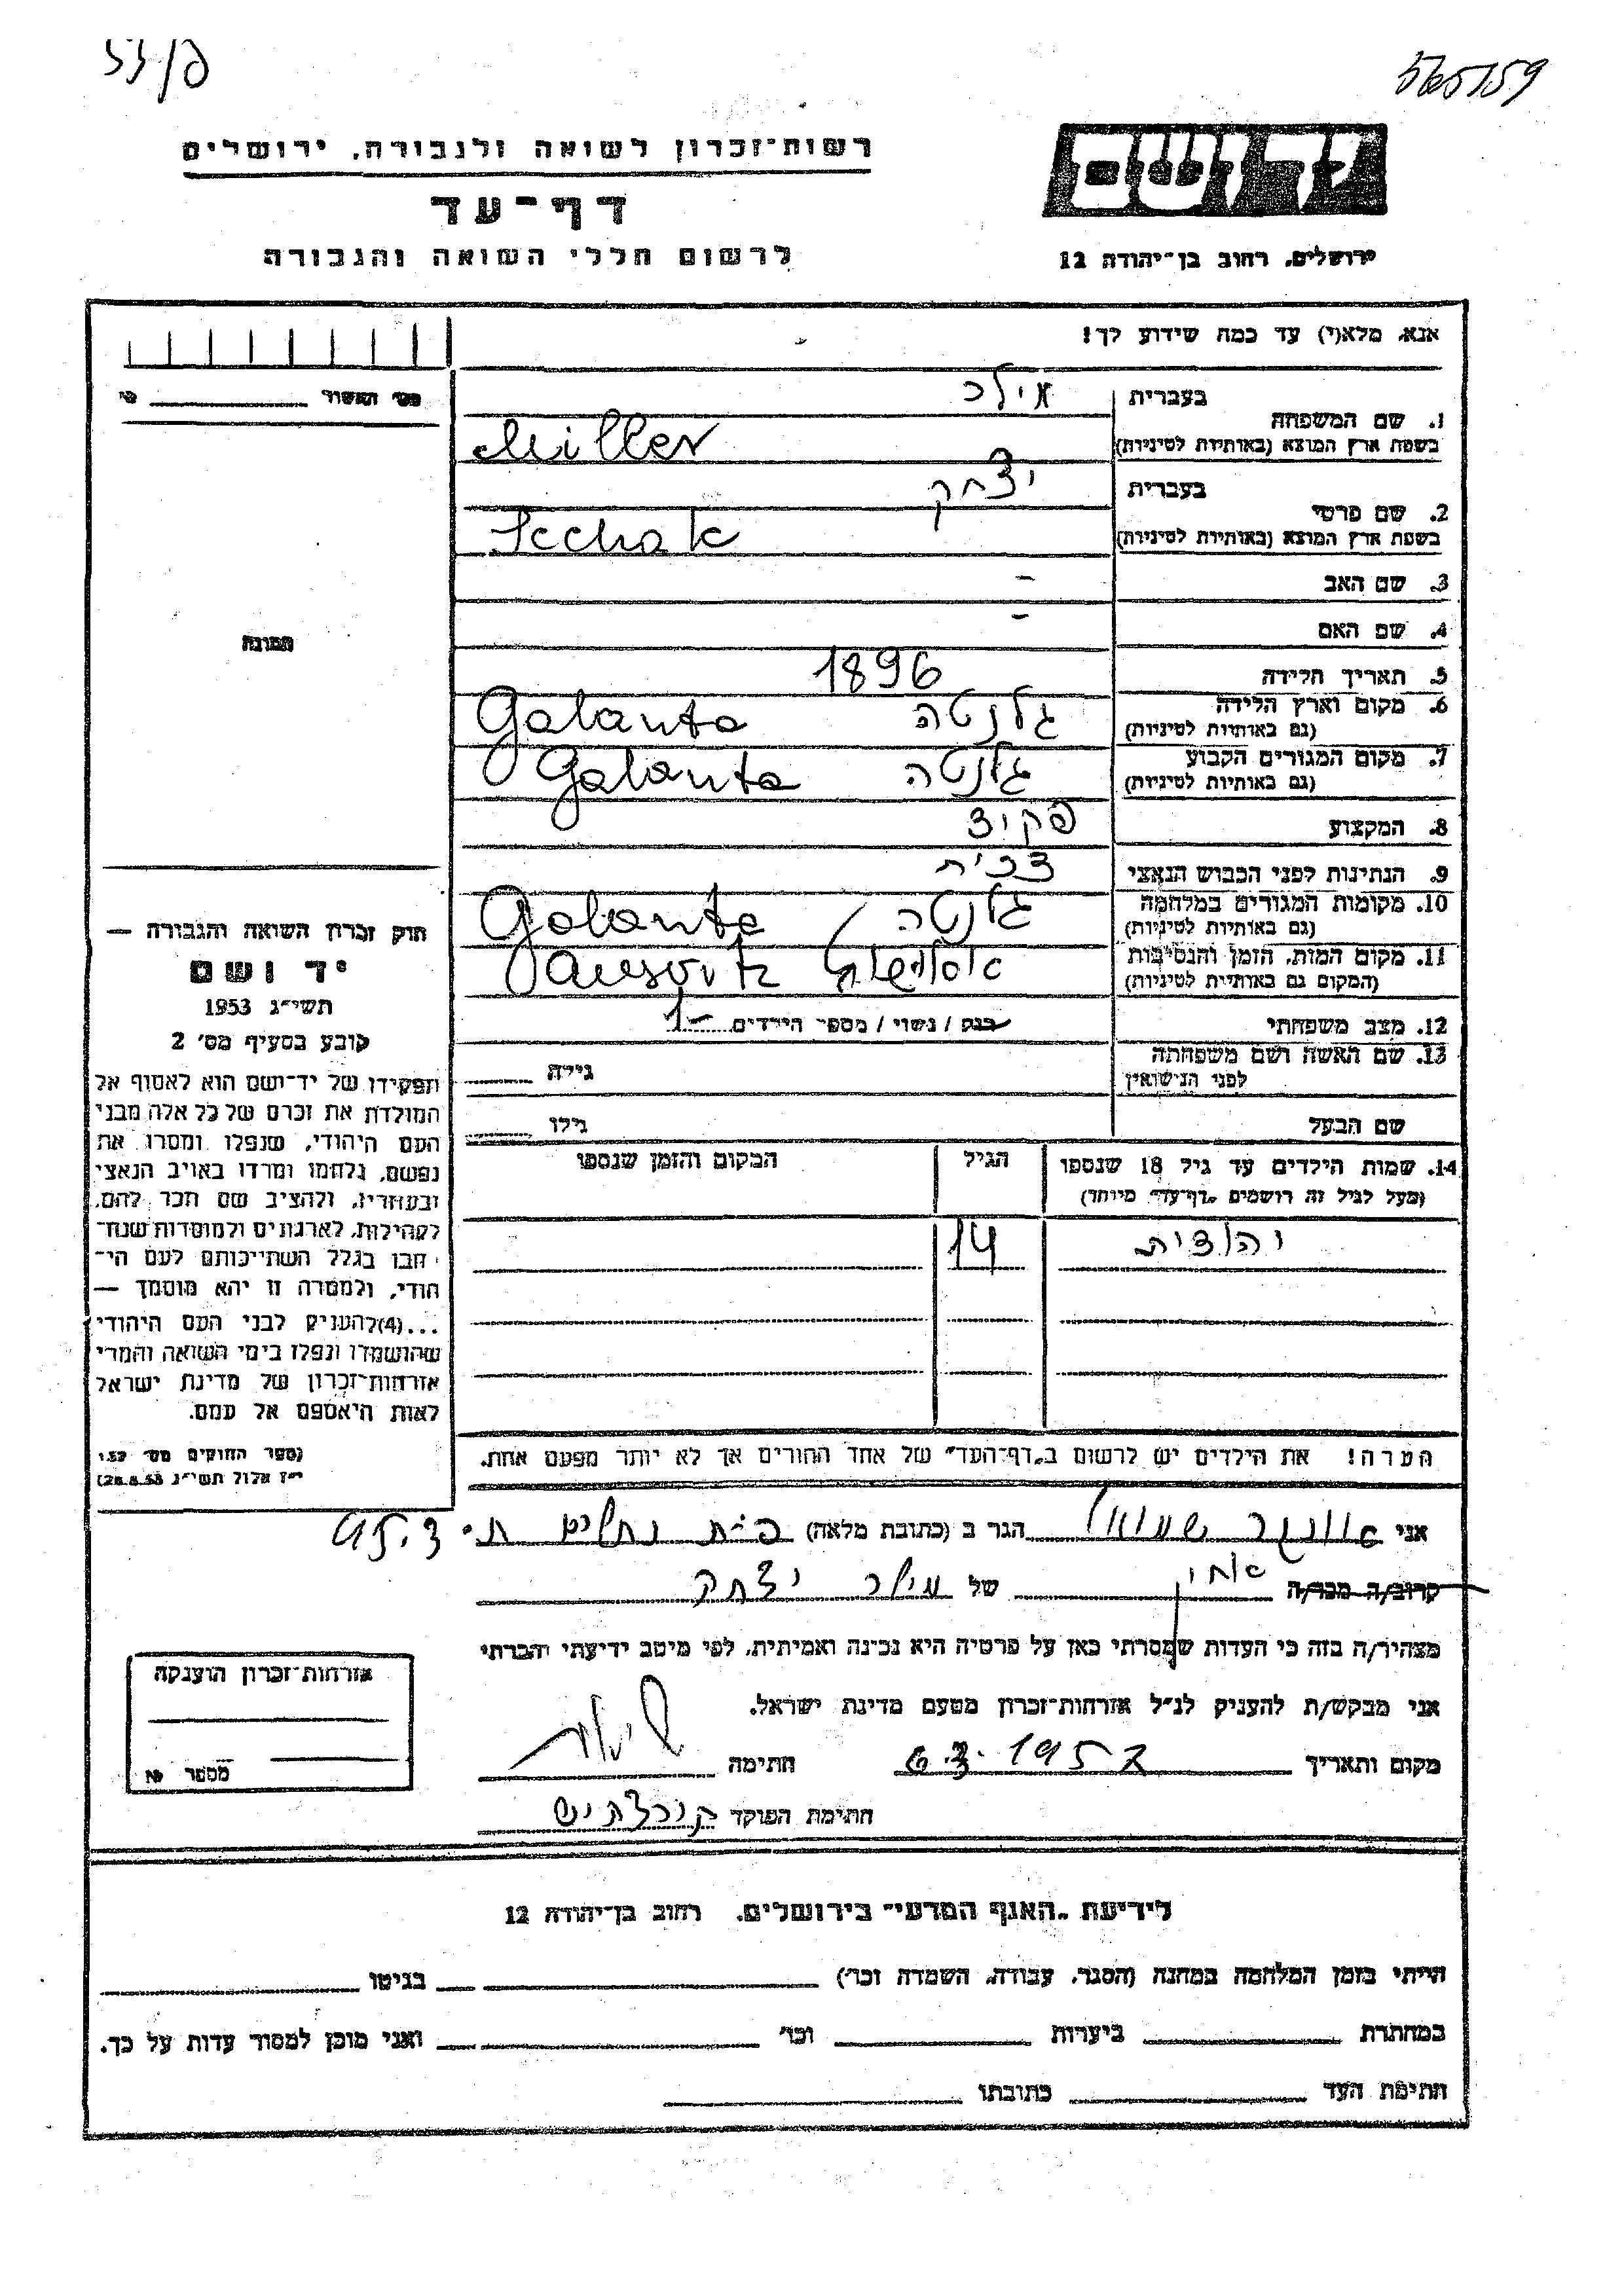 565159
רשות־זכרון לשואה ולגבורה, ירושלים
דף־עד
לרשום חללי השואה והגבורה
ירושלים, רחוב בן־יהודה 12
אנא, מלא(י) עד כמה שידוע לך!
1. שם המשפחה
בעברית מילר
בשפת ארץ המוצא (באותיות לטיניות) Miller
2. שם פרטי
בעברית יצחק
בשפת ארץ המוצא (באותיות לטיניות)
3. שם האב –
4. שם האם –
5. תאריך הלידה 1896
6. מקום וארץ הלידה (גם באותיות לטיניות) גלנטה Galanta
7. מקום המגורים הקבוע (גם באותיות לטיניות) גלנטה Galanta
8. המקצוע פקיד
9. הנתינות לפני הכבוש הנאצי
10. מקומות המגורים במלחמה (גם באותיות לטיניות) גלנטה Galanta
11. מקום המות, הזמן והנסיבות (המקום גם באותיות לטיניות)
12. מצב משפחתי רווק / נשוי / מספר הילדים 1
13. שם האשה ושם משפחתה לפני הנישואין
גילה
שם הבעל
גילו
14. שמות הילדים עד גיל 18 שנספו
(מעל לגיל זה רושמים "דף־עד" מיוחד)
הגיל
המקום והזמן שנספו
יהודית 14
הערה! את הילדים יש לרשום ב"דף־העד" של אחד ההורים אך לא יותר מפעם אחת.
תמונה
חוק זכרון השואה והגבורה —
יד ושם
תשי"ג 1953
קובע בסעיף מס׳ 2
תפקידו של יד־ושם הוא לאסוף אל
המולדת את זכרם של כל אלה מבני
העם היהודי, שנפלו ומסרו את
נפשם, נלחמו ומרדו באויב הנאצי
ובעוזריו, ולהציב שם וזכר להם,
לקהילות, לארגונים ולמוסדות שנח־
רבו בגלל השתייכותם לעם הי־
הודי, ולמטרה זו יהא מוסמך —
...(4) להעניק לבני העם היהודי
שהושמדו ונפלו בימי השואה והמרי
אזרחות־זכרון של מדינת ישראל
לאות היאספם אל עמם.
(ספר החוקים מס׳ 132
י"ז אלול תשי"ג 28.8.53)
אני אונגר שמואל הגר ב (כתובת מלאה)
קרוב/ה מכר/ה של מילר יצחק
מצהיר/ה בזה כי העדות שמסרתי כאן על פרטיה היא נכונה ואמיתית, לפי מיטב ידיעתי והכרתי
אני מבקש/ת להעניק לנ"ל אזרחות־זכרון מטעם מדינת ישראל.
מקום ותאריך 6.3.1957 חתימה
חתימת הפוקד
אזרחות־זכרון הוענקה
מספר №
לידיעת "האגף המדעי" בירושלים, רחוב בן־יהודה 12
הייתי בזמן המלחמה במחנה (הסגר, עבודה, השמדה וכו׳) בגיטו
במחתרת ביערות וכו׳ ואני מוכן למסור עדות על כך.
חתימת העד כתובתו